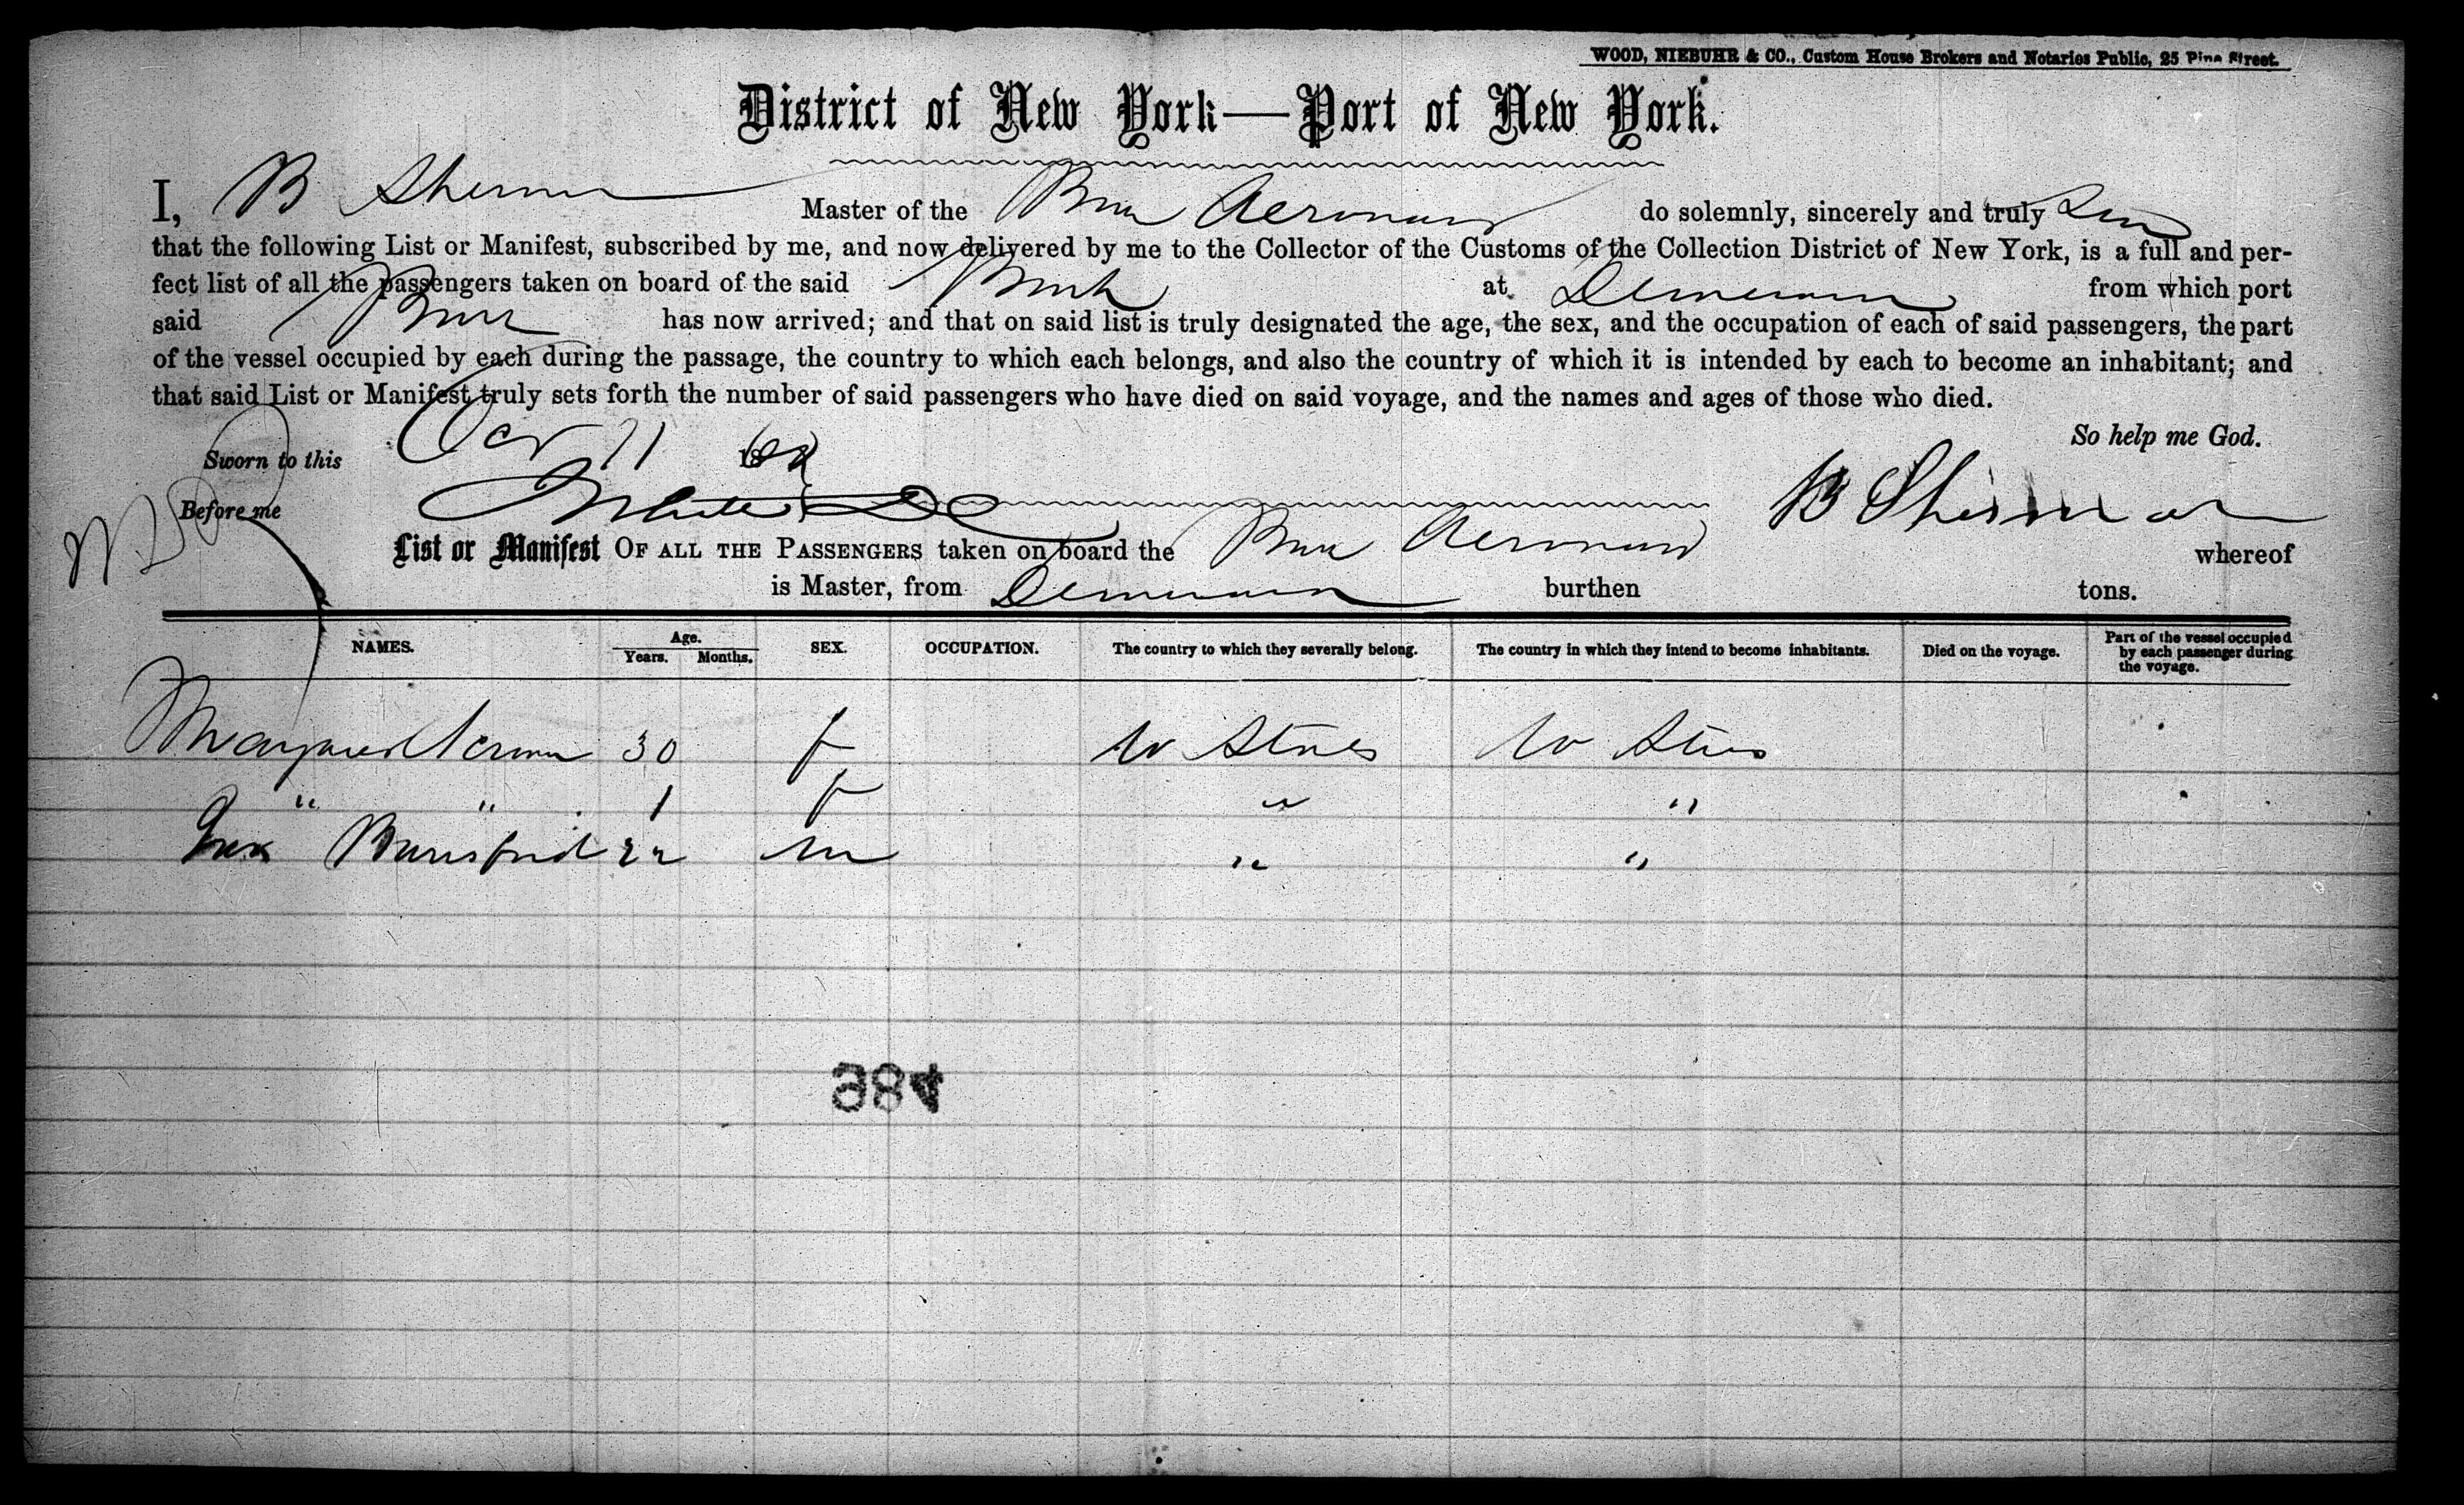 WOOD, NIEBUHR & CO., Custom House Brokers and Notaries Public, 25 Pine Street.
District of New York—Port of New York.
I, B Sherman Master of the do solemnly, sincerely and truly
that the following List or Manifest, subscribed by me, and now delivered by me to the Collector of the Customs of the Collection District of New York, is a full and per-
fect list of all the passengers taken on board of the said at Demerara from which port
said has now arrived; and that on said list is truly designated the age, the sex, and the occupation of each of said passengers, the part
of the vessel occupied by each during the passage, the country to which each belongs, and also the country of which it is intended by each to become an inhabitant; and
that said List or Manifest truly sets forth the number of said passengers who have died on said voyage, and the names and ages of those who died.
So help me God.
Sworn to this 11 18
Before me B Sherman
List or Manifest OF ALL THE PASSENGERS taken on board the whereof
is Master, from Demerara burthen tons.
NAMES. Age. Years. Months. SEX. OCCUPATION. The country to which they severally belong. The country in which they intend to become inhabitants. Died on the voyage. Part of the vessel occupied by each passenger during the voyage.
Margaret 30 f U States U States
" " 1 f " "
22 m " "
384